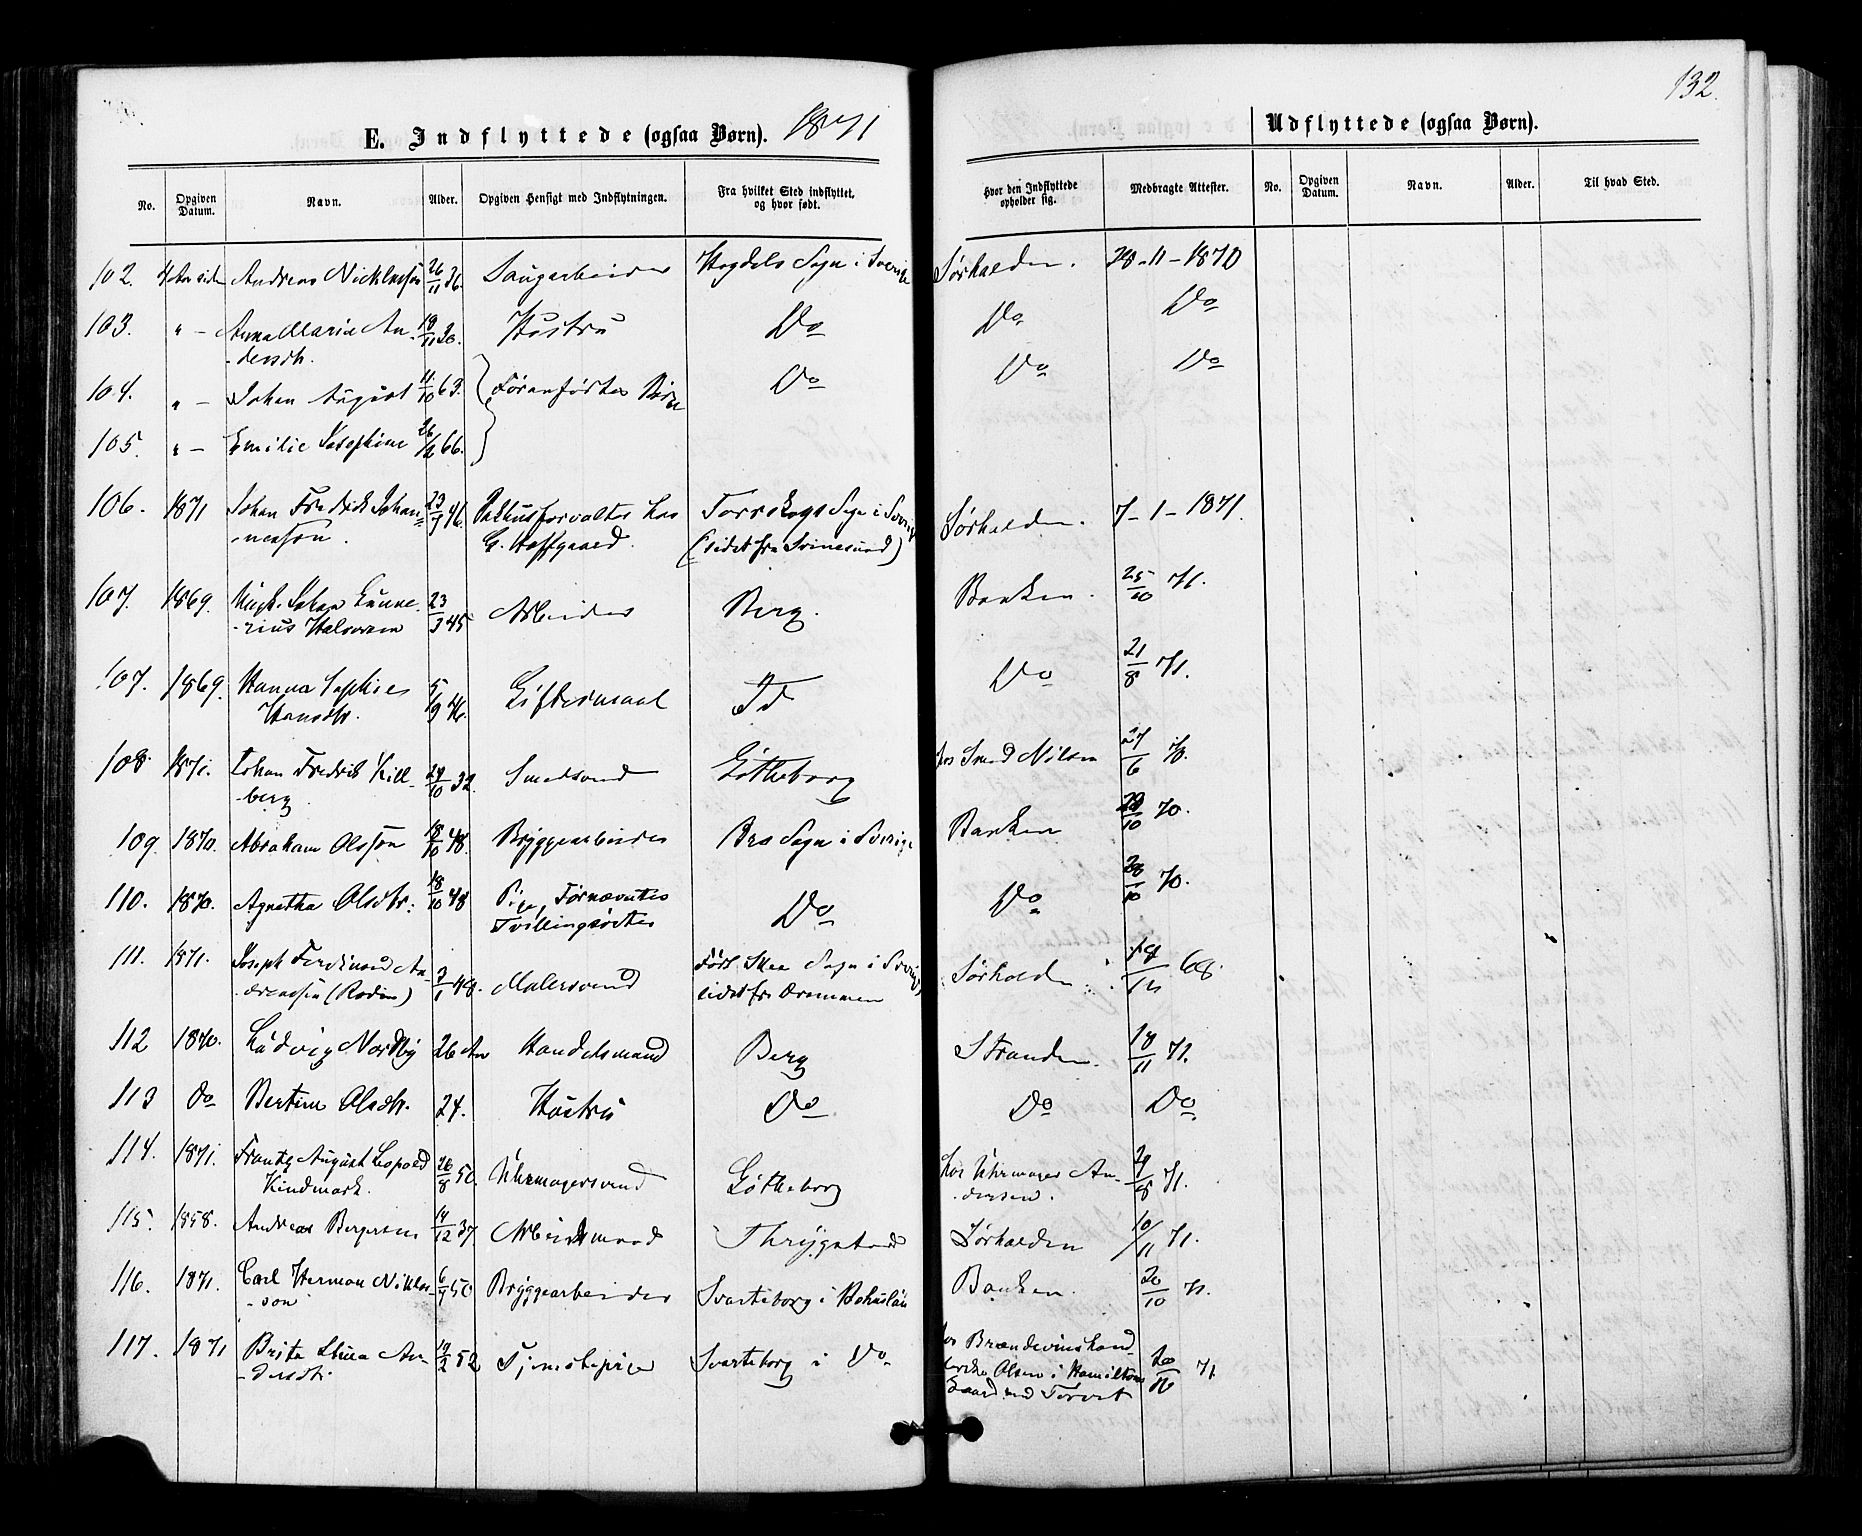 132.
E. Indflyttede (ogsaa Børn). 1871
Udflyttede (ogsaa Børn).
No. Opgiven Datum. Navn. Alder. Opgiven Hensigt med Indflytningen. Fra hvilket Sted indflyttet, og hvor født. Hvor den Indflyttede opholder sig. Medbragte Attester. No. Opgiven Datum. Navn. Alder. Til hvad Sted.
102. 4 Aar siden Andreas Nicklasson 26/11 36. Saugarbeider Hogdals Sogn i Sverige Sørhalden. 28-11-1870
103. " – Anna Maria An- 19/11 30. Hustru Do Do Do
-dersdtr.
104. " – Johan August 11/10 63. Foranførtes Børn Do Do Do
105. " – Emilie Josephine 66.
106. 1871 Johan Fredrik Johan- 46. Pakhusforvalter hos Torrskogs Sogn i Sverige Sørhalden. 7-1-1871.
-nesson. G. Hoffgaard. (sidst fra Svinesund)
107. 1869. Johan Gunne- 23/3 45 Arbeider Berg. Banken. 25/10 71.
-rius Halvorsen
107. 1869. Hanna Sophie 5/9 46. Giftermaal Id Do 21/8 71.
Hansdtr.
108. 1871. Johan Fredrik Kill- 24/10 32. Smedsvend Gøtheborg hos Smed Nilsen 27/6 70.
-berg
109. 1870. Abraham Olsson 18/10 48. Bryggearbeider Bro Sogn i Sverige Banken 28/10 70.
110. 1870. Agnetha Olsdtr. 18/10 48 Pige, Fornævntes Do Do 28/10 70.
Tvillingsøster
111. 1871. Joseph Ferdinand An- 3/1 48. Malersvend Født Skee Sogn i Sverige Sørhalden 68.
-dreasson (Rodin) sidst fra Drammen
112 1870. Ludvig Nordby 26 Aar Handelsmand Berg Stranden. 18/11 71.
113 Do Bertine Olsdtr. 24. Hustru Do Do Do
114. 1871. Frantz August Leopold 26/8 50. Uhrmagersvend Gøtheborg hos Uhrmager An- 29/8 71.
Kindmark. -dersen.
115. 1858. Andreas Bergersen 14/12 37. Arbeidsmand Thrygstad Sørhalden 10/11 71.
116. 1871. Carl Herman Niklas- 50 Bryggearbeider Svarteborg i Bohuslän Banken. 20/10 71.
-son
117. 1871 Brita An- 19/2 52 Tjenestepige Svarteborg i Do hos Brændevinshand- 71.
-dersdtr. Olsen i Hamiltons
Gaard ved Torvet